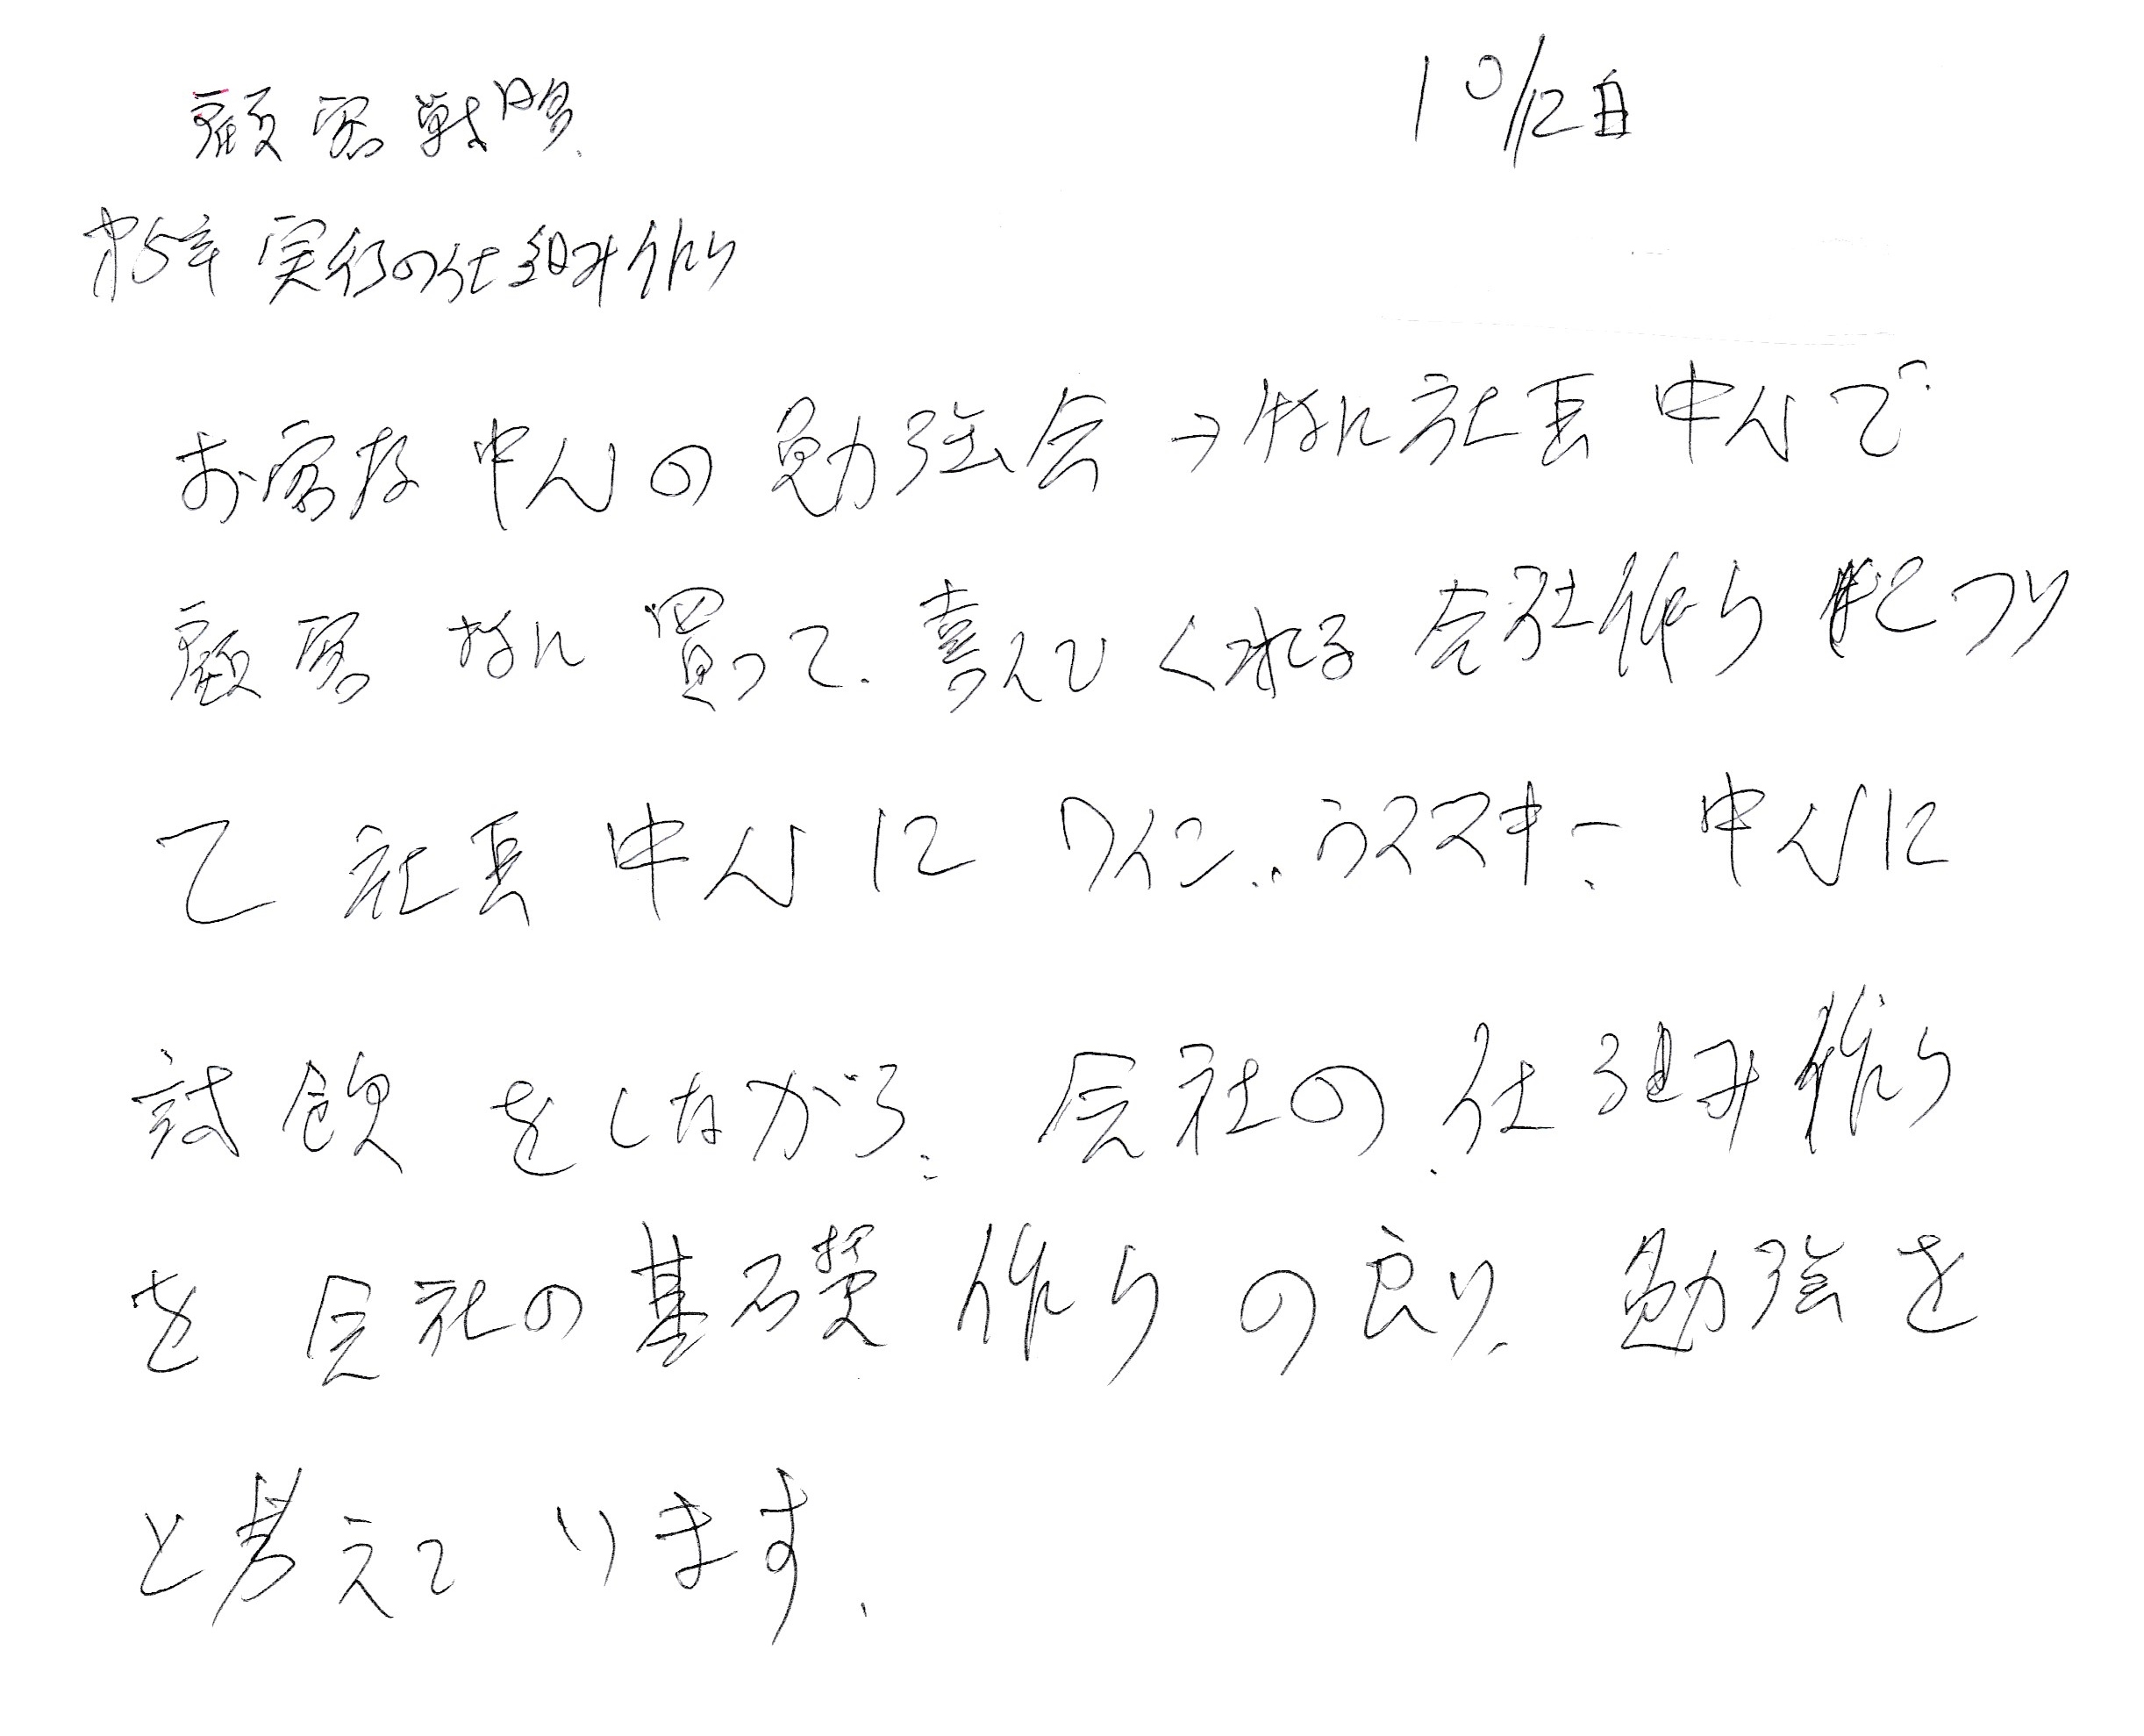 顧客戦略 10/12日
第5章 実行の仕組み作り
お客様中心の勉強会→特に社長中心で
顧客 特に買って、喜んでくれる会社作り
て 社長中心に ワイン、ウススキー 中心に
試飲をしながら、会社の仕組み作り
を会社の基礎作りの良い、勉強を
と考えています、